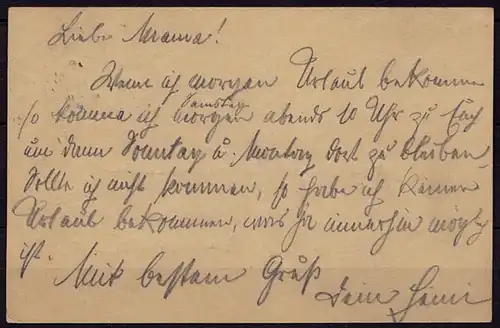 Liebe Mama!
Wenn ich morgen Urlaub bekomme
so komme ich morgen Samstag abends 10 Uhr zu Euch
um dann Sonntag u. Montag dort zu bleiben.
Sollte ich nicht kommen, so habe ich keinen
Urlaub bekommen, was ja immerhin möglich
ist.
Mit bestem Gruß
Dein Heini